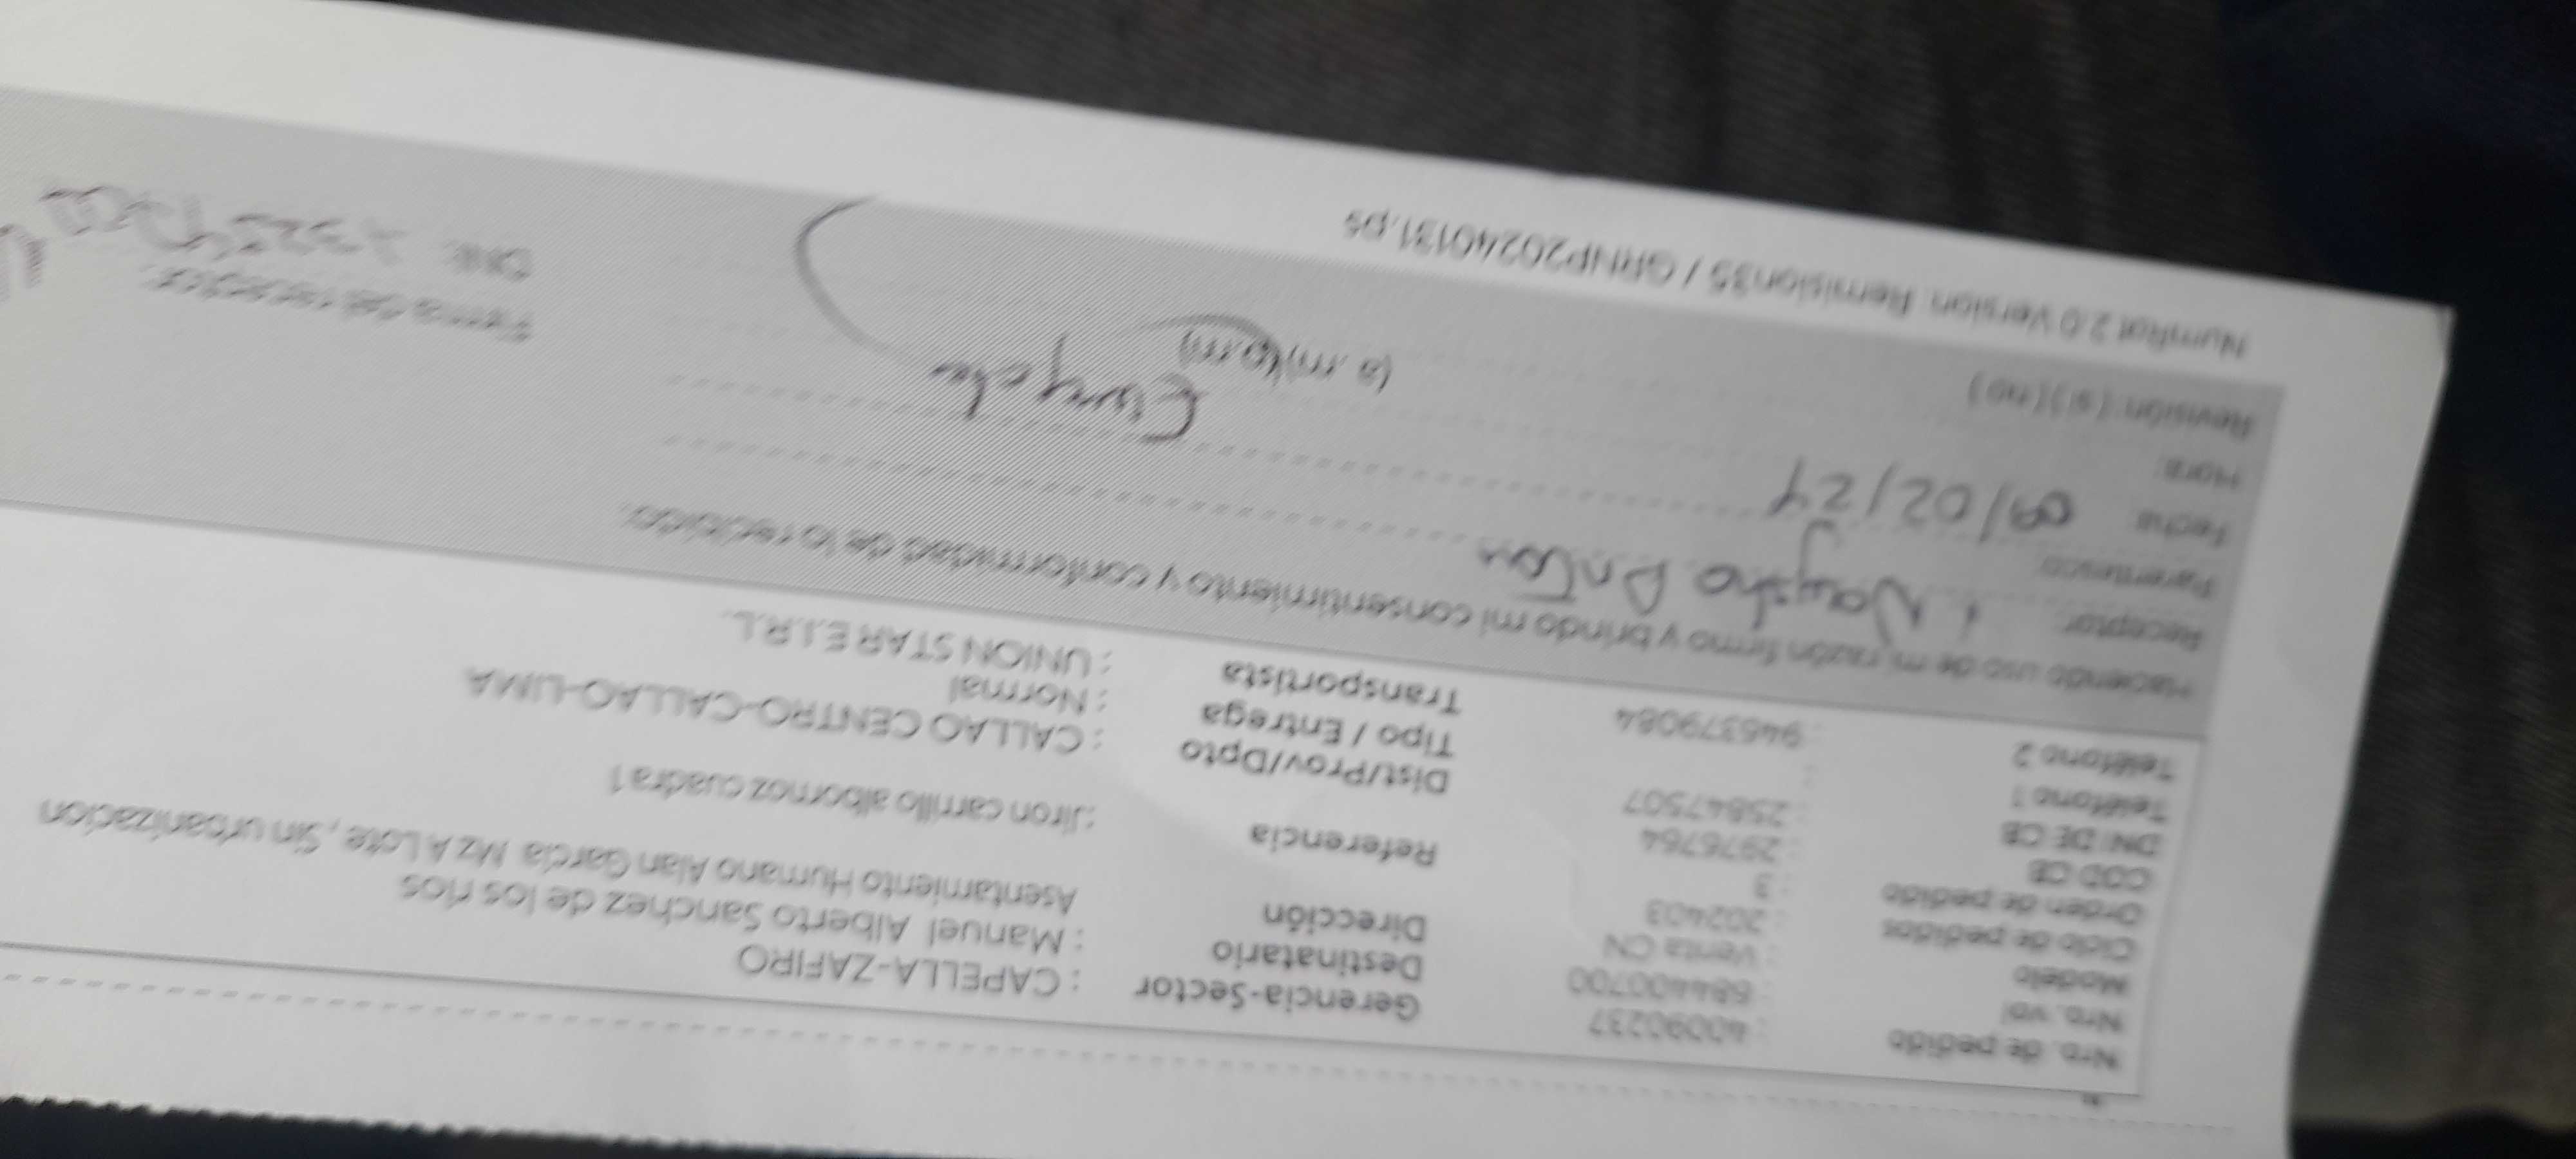 Nro. de pedido : 40090237
Nro. vol : 684400700
Modelo : Venta CN
Ciclo de pedidos : 202403
Orden de pedido : 3
COD CB : 2976764
DNI DE CB : 25847507
Teléfono 1 :
Teléfono 2 : 946379084
Gerencia-Sector : CAPELLA-ZAFIRO
Destinatario : Manuel Alberto Sanchez de los rios
Dirección Asentamiento Humano Alan García Mz A Lote , Sin urbanizacion
Referencia : Jiron carrillo albornoz cuadra 1
Dist/Prov/Dpto : CALLAO CENTRO-CALLAO-LIMA
Tipo / Entrega : Normal
Transportista : UNION STAR E.I.R.L.
Haciendo uso de mi razón firmo y brindo mi consentimiento y conformidad de lo recibido.
Receptor:
Parentesco:
Fecha: 09/02/24
Hora: (a.m)(p.m)
Revisión: (si) (no)
Firma del receptor:
DNI:
NumRot 2.0 Version: Remision35 / GRNP20240131.ps